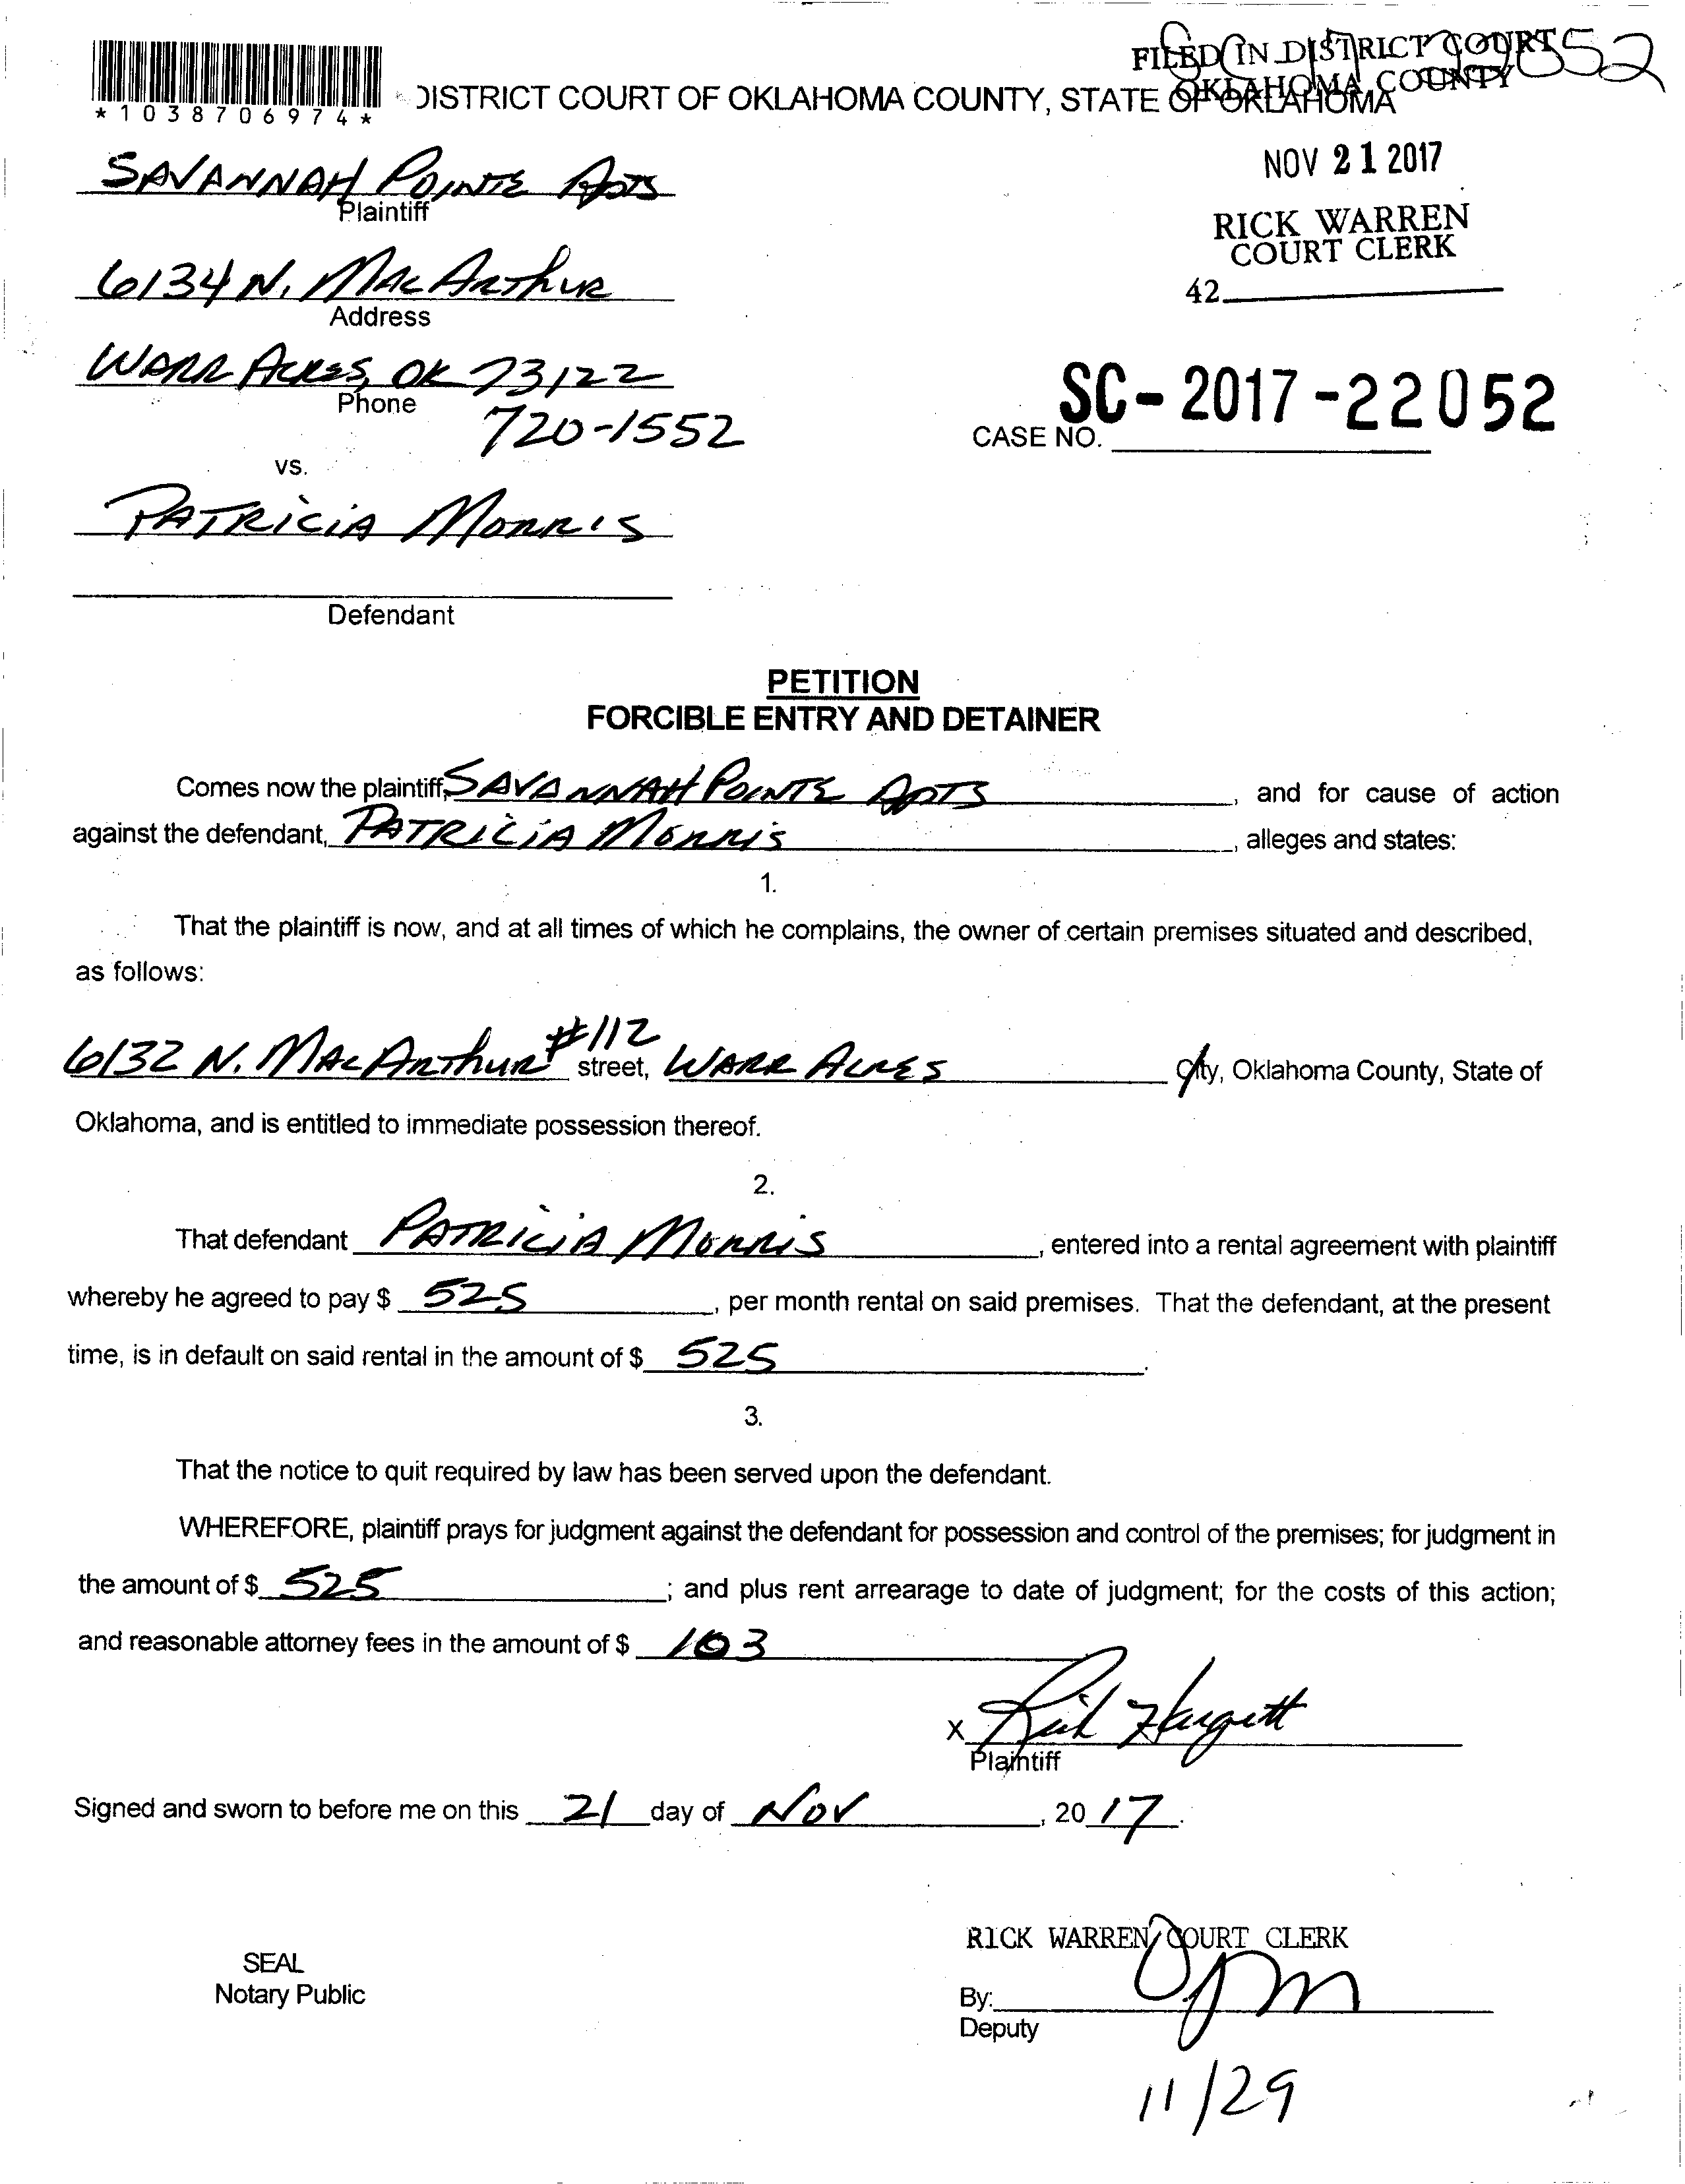 FILED IN DISTRICT COURT
OKLAHOMA COUNTY
*1038706974*
DISTRICT COURT OF OKLAHOMA COUNTY, STATE OF OKLAHOMA
NOV 21 2017
SAVANNAH POINTE APTS
Plaintiff
RICK WARREN
COURT CLERK
42
6134 N. MACARTHUR
Address
WARR ACRES, OK 73122
Phone
720-1552
SC-2017-22052
CASE NO.
vs.
PATRICIA MORRIS
Defendant
PETITION
FORCIBLE ENTRY AND DETAINER
Comes now the plaintiff, SAVANNAH POINTE APTS, and for cause of action
against the defendant, PATRICIA MORRIS, alleges and states:
1.
That the plaintiff is now, and at all times of which he complains, the owner of certain premises situated and described,
as follows:
6132 N. MACARTHUR #112 street, WARR ACRES City, Oklahoma County, State of
Oklahoma, and is entitled to immediate possession thereof.
2.
That defendant PATRICIA MORRIS, entered into a rental agreement with plaintiff
whereby he agreed to pay $ 525, per month rental on said premises. That the defendant, at the present
time, is in default on said rental in the amount of $ 525.
3.
That the notice to quit required by law has been served upon the defendant.
WHEREFORE, plaintiff prays for judgment against the defendant for possession and control of the premises; for judgment in
the amount of $ 525; and plus rent arrearage to date of judgment; for the costs of this action;
and reasonable attorney fees in the amount of $ 103
X Rick Hargett
Plaintiff
Signed and sworn to before me on this 21 day of NOV, 2017.
RICK WARREN COURT CLERK
SEAL
Notary Public
By:
Deputy
11/29